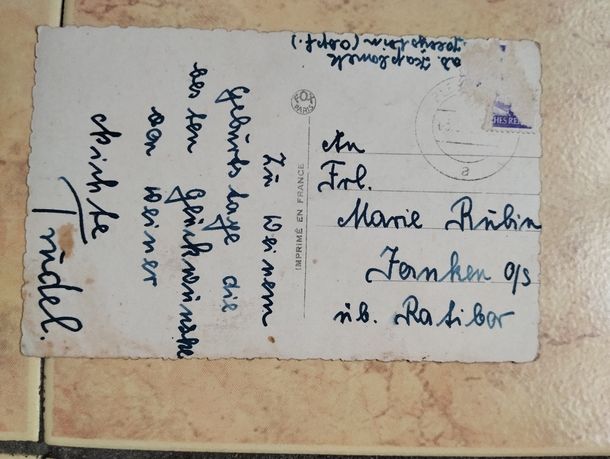 Zu Deinem
Geburtstage die
besten Glückwünsche
von Deiner
Nichte
Trudel.
FOX
PARIS
IMPRIMÉ EN FRANCE
ab.
a
An
Frl.
Marie Rubin
Janken o/s
üb. Ratibor